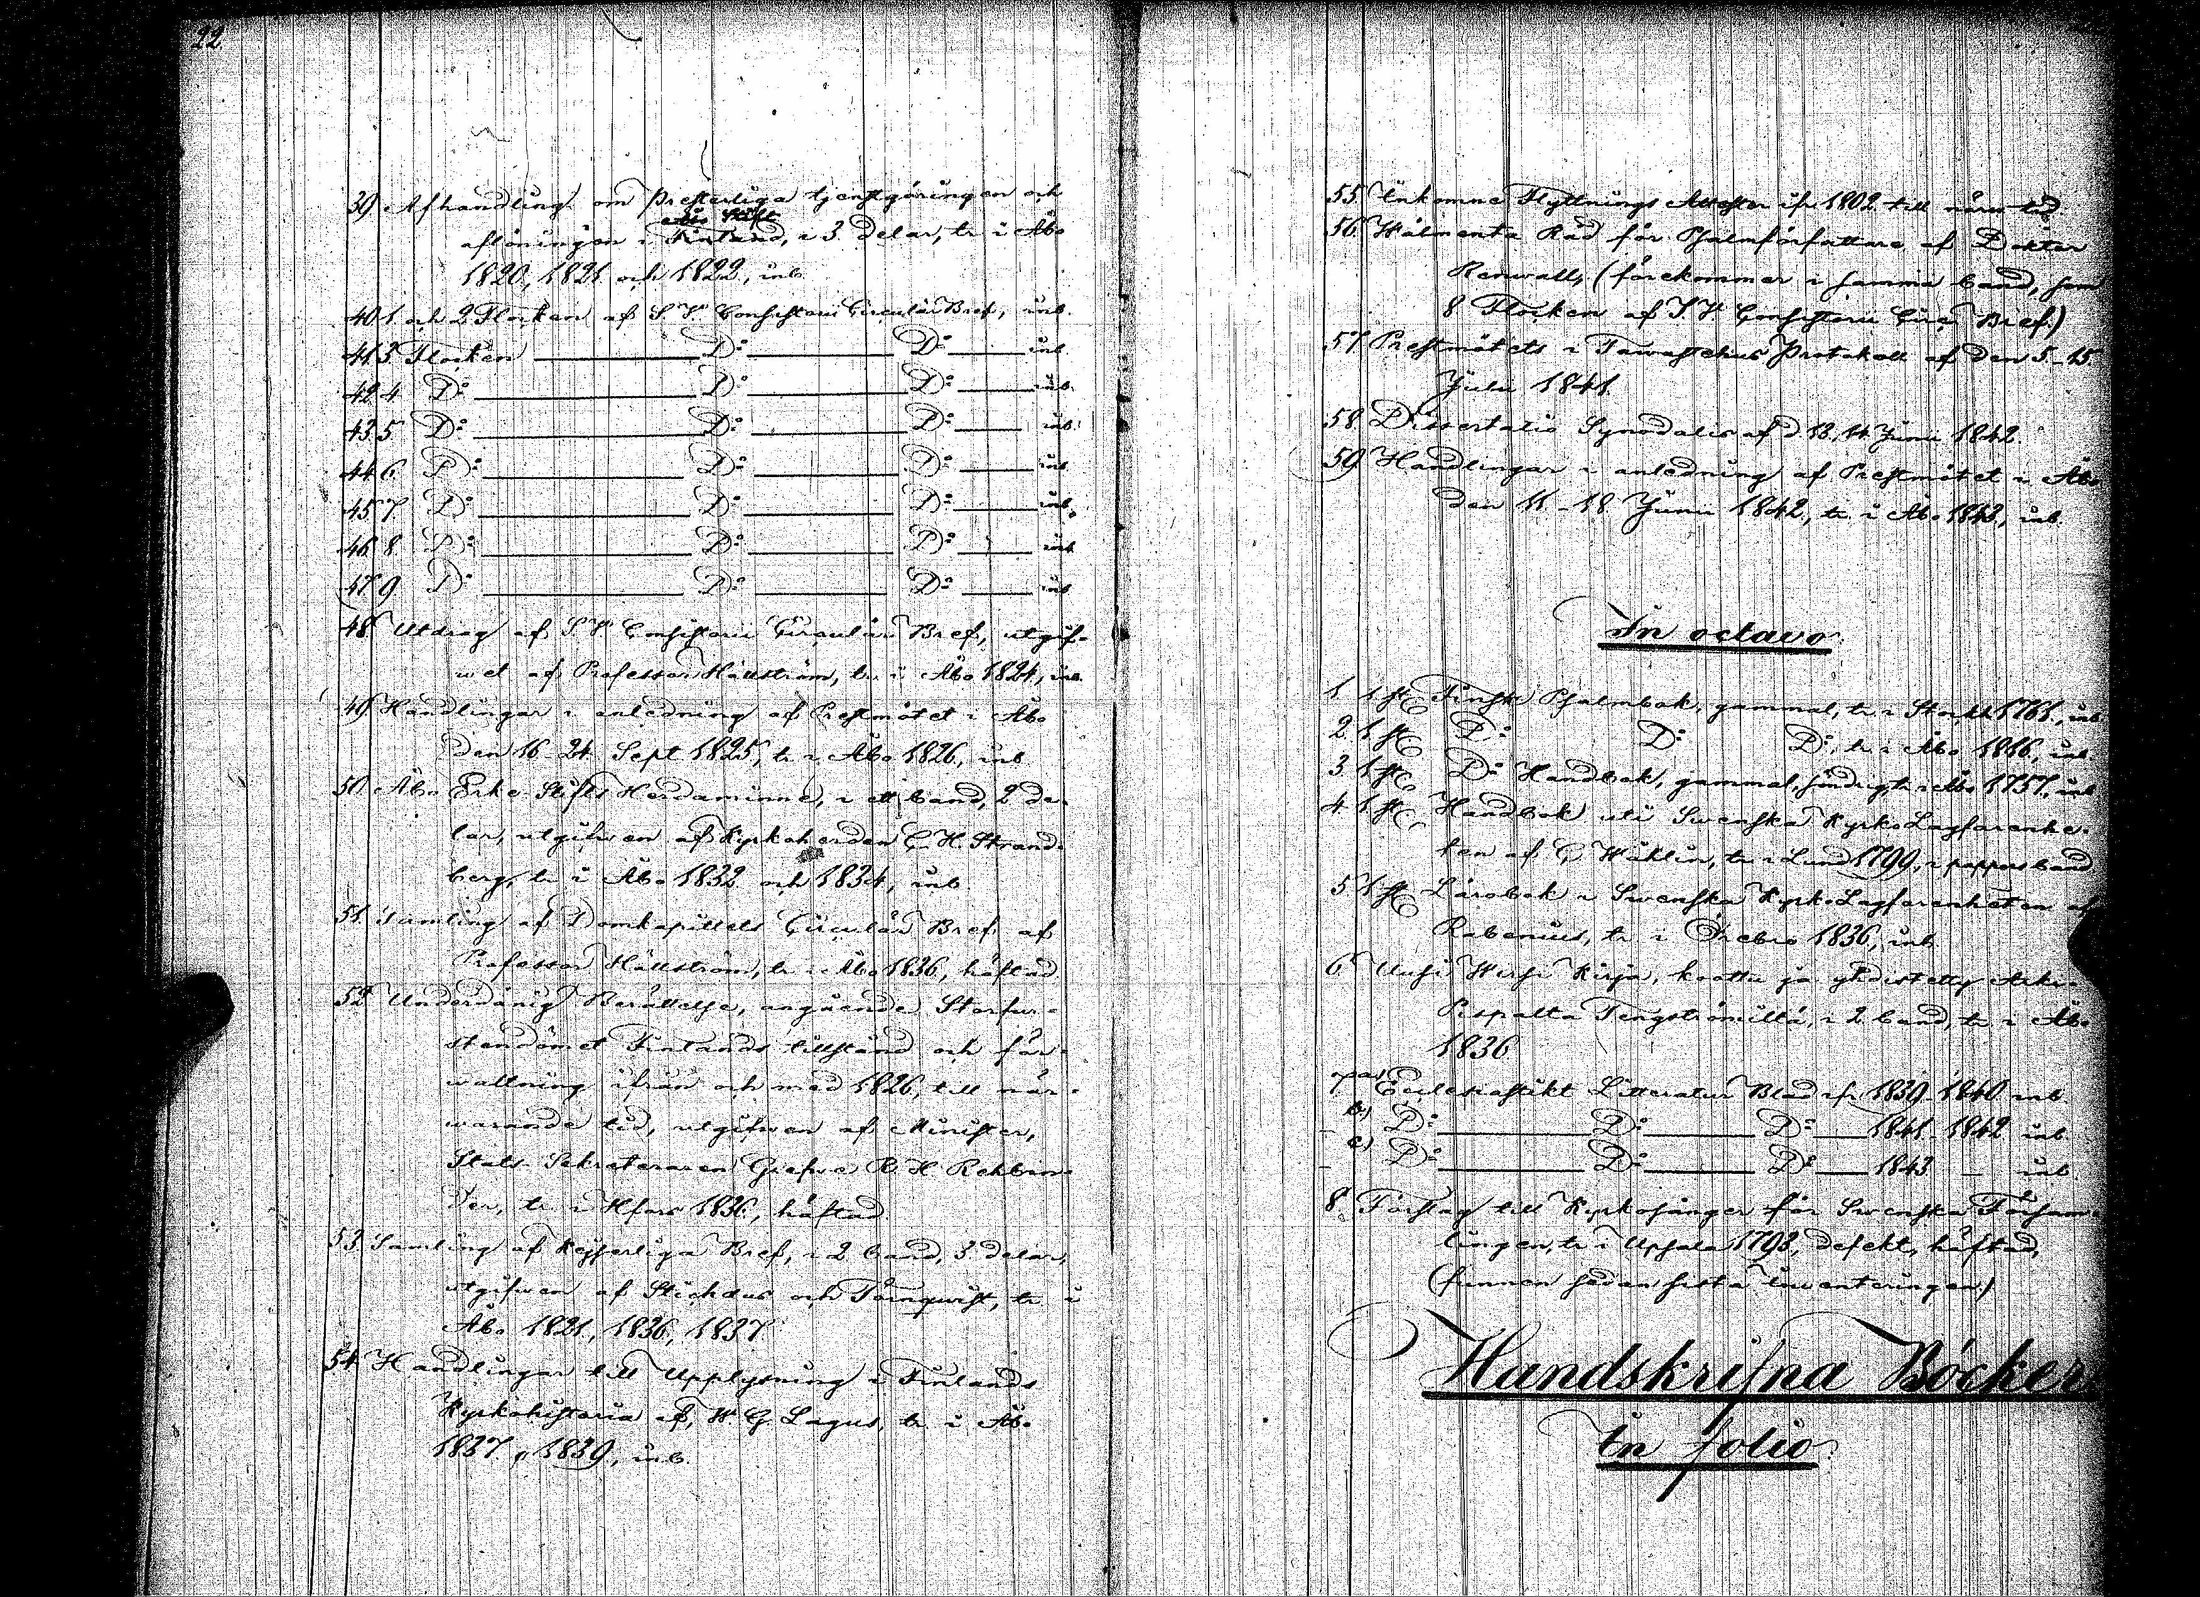 22
39 Afhandling om Presterliga tjenstgöringen och
Åbo Stift
aflöningen i Finland, i 3 delar, tr. i Åbo
1820, 1821 och 1822, inb.
40 1 och 2 Flocken af S. V. Consistorii Circulär Bref, inb.
41 3 Flocken D:o D:o inb.
42 4 D:o D:o D:o inb.
43 5 D:o D:o D:o inb.
44 6 D:o D:o D:o inb.
45 7 D:o D:o D:o inb.
46 8 D:o D:o D:o inb.
47 9 D:o D:o D:o inb.
48 Utdrag af S. V. Consistorii Circulär Bref, utgif-
wet af Professor Hällström, tr. i Åbo 1824, inb.
49 Handlingar i anledning af Prestmötet i Åbo
den 16-24 Sept 1825, tr. i Åbo 1826, inb.
50 Åbo Erke-Stifts Herdaminne, i ett band, 2 de-
lar, utgifwen af Kyrkoherden C. H. Strand-
berg, tr. i Åbo 1832 och 1834, inb.
51 Samling af Domkapitlets Circulär Bref af
Professor Hällström, tr. i Åbo 1836, häftad
52 Underdånig Berättelse, angående Storfur-
stendömet Finlands tillstånd och för-
waltning ifrån och med 1826, till när-
warande tid, utgifwen af Minister,
Stats-Sekreteraren Grefwe R. H. Rehbin-
der, tr. i Hfors 1836, häftad
53 Samling af Kejserliga Bref, i 2 band, 3 delar,
utgifwen af Stichæus och Törnqwist, tr. i
Åbo 1821, 1836, 1837
54 Handlingar till Upplysning i Finlands
Kyrkohistoria af W. G. Lagus, tr. i Åbo
1837, 1839, inb.
55 Inkomne Flyttnings Attester ifr. 1802 till närw. tid.
56 Wälmenta Råd för Psalmförfattare af Doktor
Renwall, (förekommer i samma band, som
8 Flocken af S. V. Consistorii Circ. Bref.)
57 Prestmötets i Tawastehus Protokoll af den 5-15
Julii 1841.
58 Dissertatio Synodalis af d. 13, 14 Junii 1842.
59 Handlingar i anledning af Prestmötet i Åbo
den 11-18 Junii 1842, tr. i Åbo 1843, inb.
In octavo.
1 1 st. Finsk Psalmbok, gammal, tr. i Stockh. 1761, inb
2 1 st. D:o D:o D:o, tr. i Åbo 1816, inb.
3 1 st. D:o Handbok, gammal, söndrig, tr. i Åbo 1757, inb
4 1 st. Handbok uti Swenska Kyrko Lagfarenhe-
ten af C. Wåhlin, tr. i Lund 1799, i pappersband
5 1 st. Lärobok i Swenska Kyrko Lagfarenheten af
Rabenius, tr. i Örebro 1836, inb.
6 Uusi Wirsi Kirja, koottu ja yhdistetty Arki-
Pispalta Tengströmiltä, i 2 band, tr. i Åbo
1836
7 a) Ecclesiastikt Litteratur Blad ifr. 1839-1840 inb.
b) D:o D:o D:o 1841-1842 inb
c) D:o D:o D:o 1843 - inb
8 Förslag till Kyrkosånger för Swenska Försam-
lingen, tr. i Upsala 1793, defekt, häftad,
(funnen sedan sista inwenteringen)
Handskrifna Böcker
In folio.